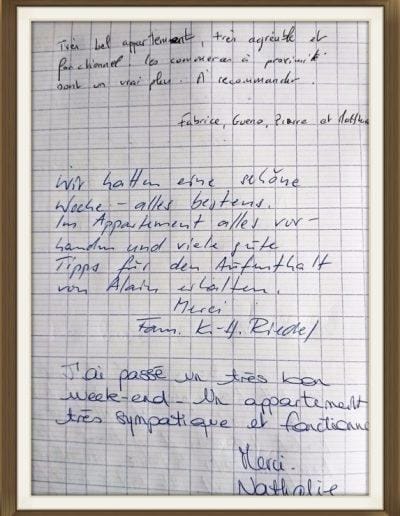 Très bel appartement, très agréable et
fonctionnel. les commerces à proximité
sont un vrai plus. A recommander.
Fabrice, Pierre et
Wir hatten eine schöne
Woche - alles bestens.
Im Appartement alles vor-
handen und viele gute
Tipps für den Aufenthalt
von Alain erhalten.
Merci
Fam. K.-H. Riedel
J'ai passé un très bon
week-end. Un appartement
très sympatique et fonctionne
Merci.
Nathalie